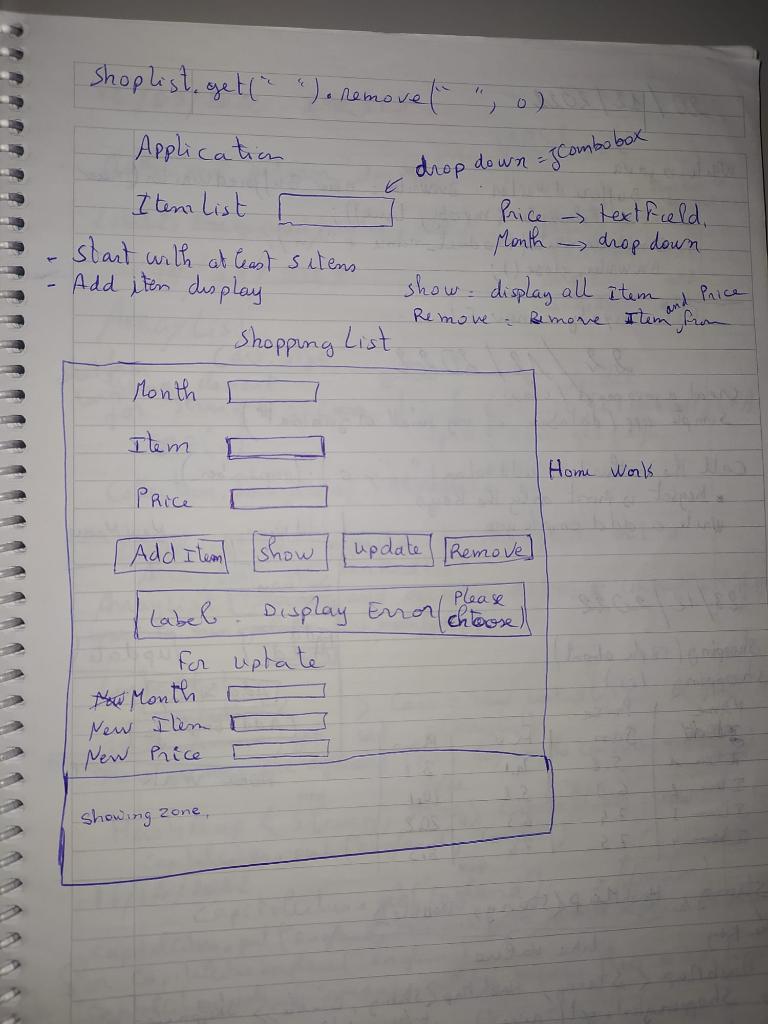 Shoplist.get(" ").remove(" ", 0)
Application
drop down = JCombobox
Item List
Price → textField.
Month → drop down
- Start with at least 5 itens
- Add iten display
show = display all Item and Price
Remove = Remove Item from
Shopping List
Month
Item
Home Work
Price
Add Item show update Remove
Label - Display Error (Please choose)
For uptate
Month
New Item
New Price
Showing zone.